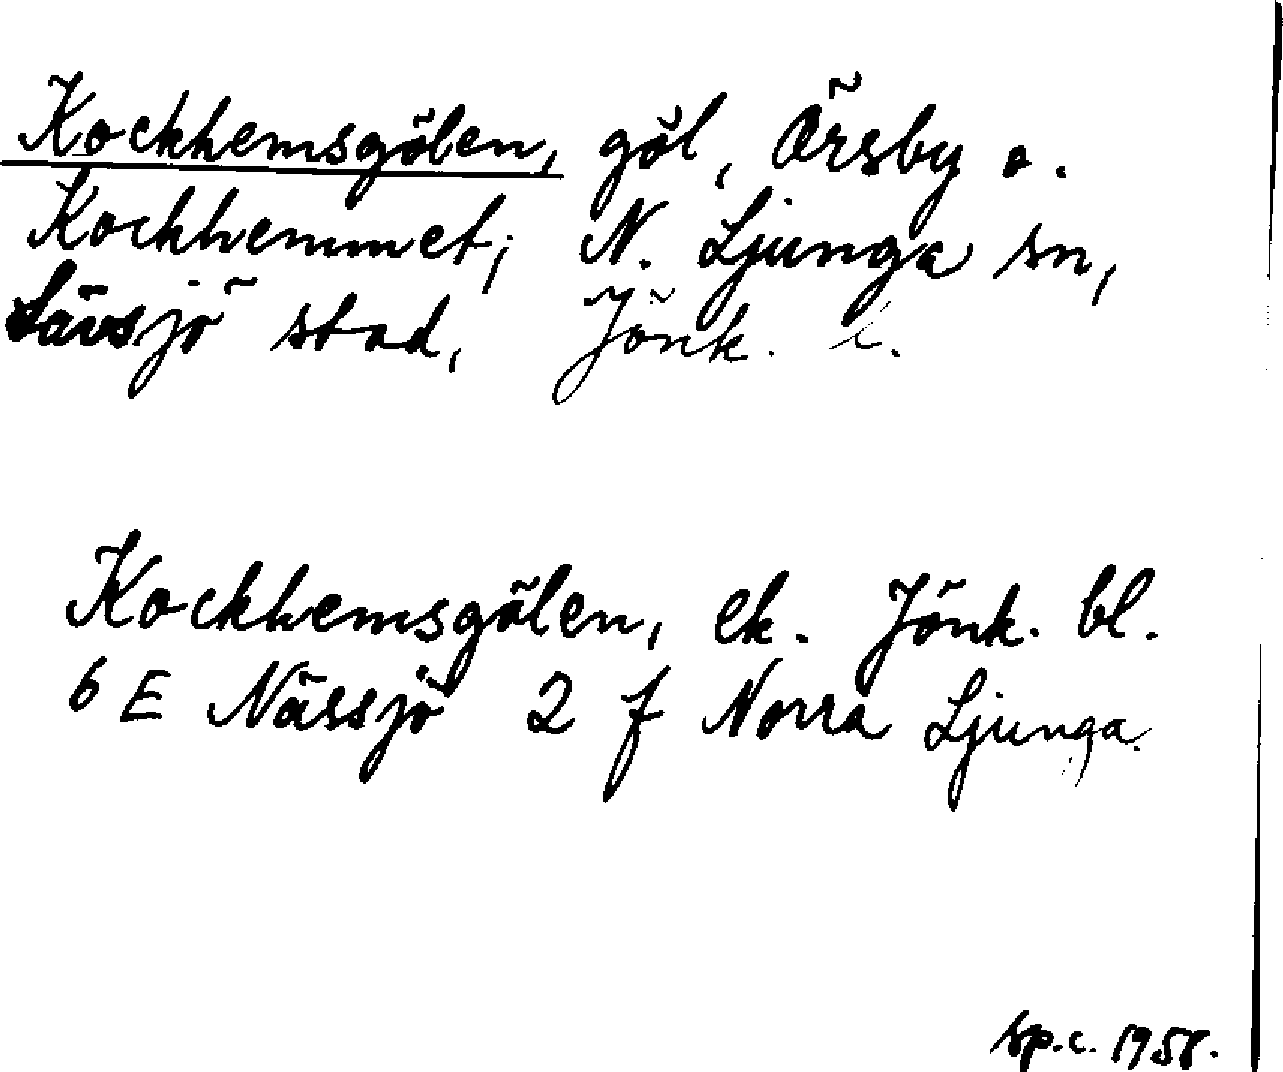 Kockhemsgölen, göl, Örsby o.
Kockhemmet; N. Ljunga sn,
Sävsjö stad, Jönk. l.
Kockhemsgölen, ek. Jönk. bl.
6 E Nässjö 2 f Norra Ljunga.
sp.c. 1958.